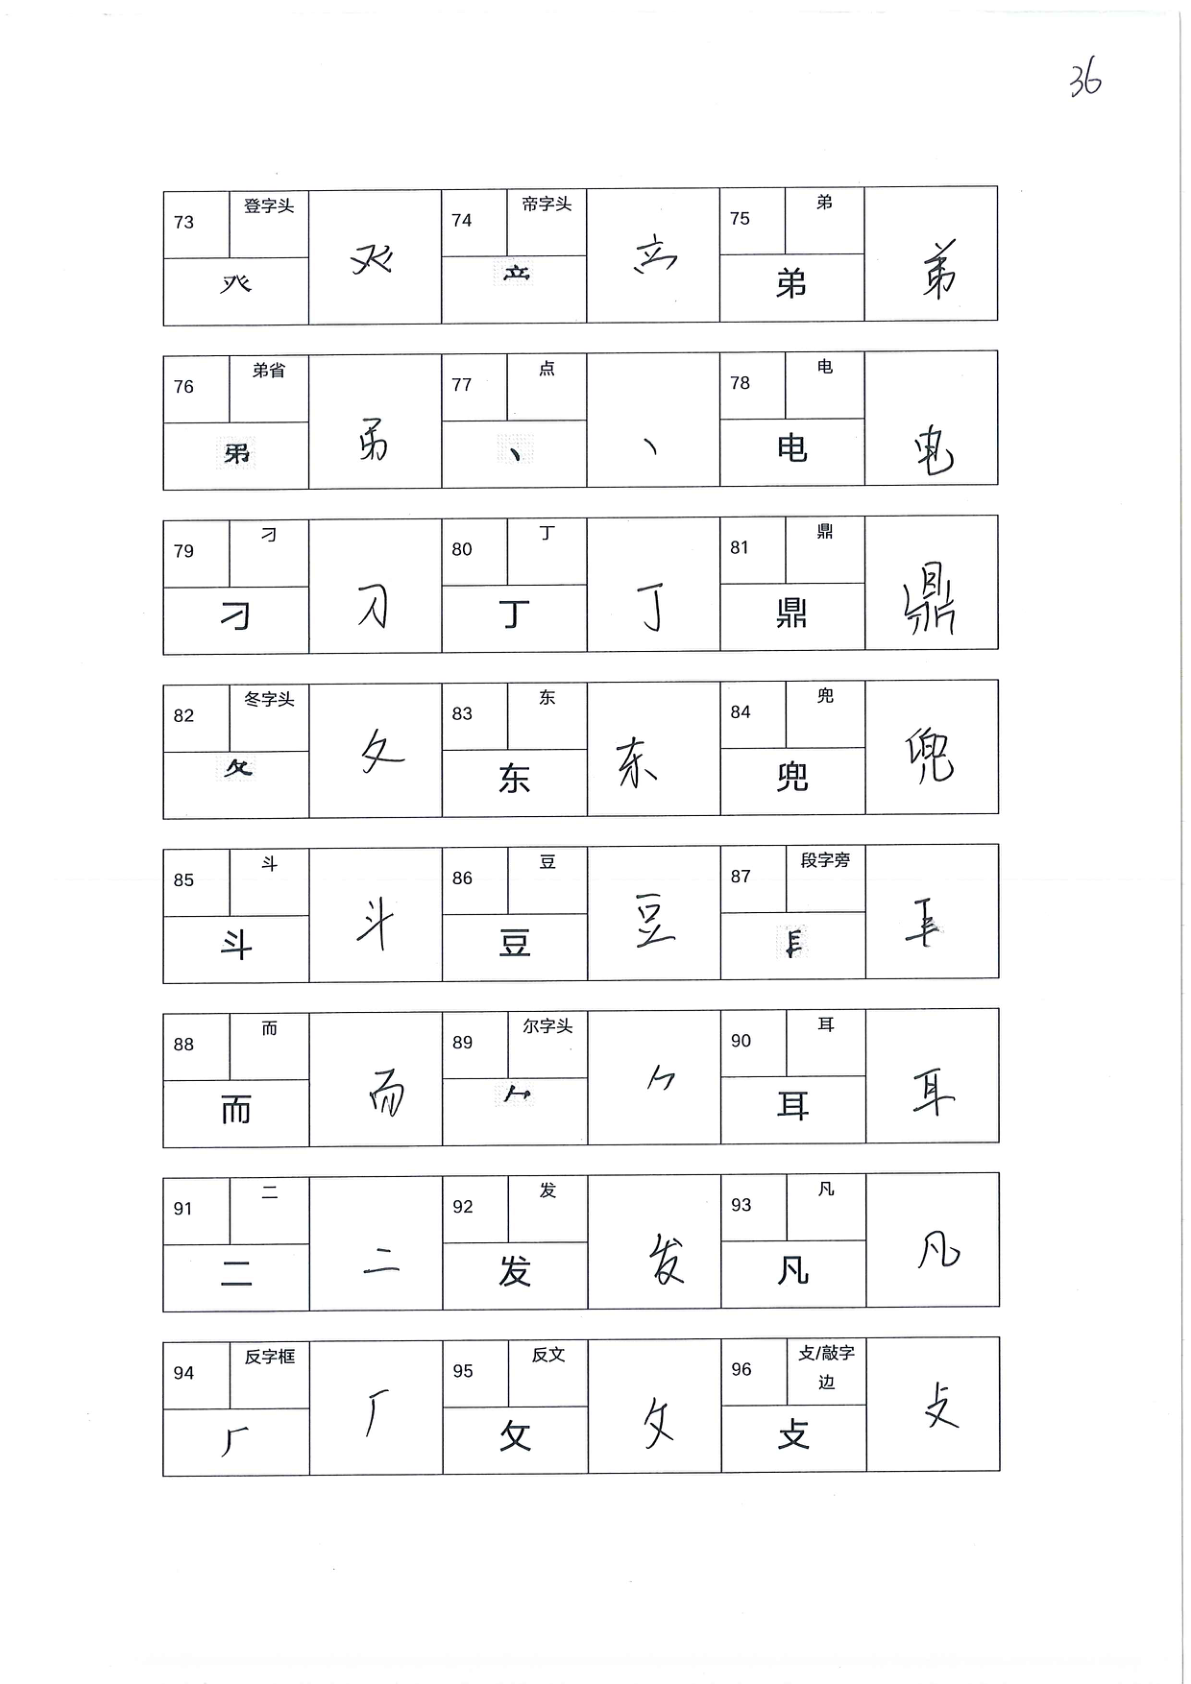 36
73 登字头 癶 癶 74 帝字头 75 弟 弟 弟
76 弟省 77 点 丶 丶 78 电 电 电
79 刁 刁 刁 80 丁 丁 丁 81 鼎 鼎 鼎
82 冬字头 夂 夂 83 东 东 东 84 兜 兜 兜
85 斗 斗 斗 86 豆 豆 豆 87 段字旁
88 而 而 而 89 尔字头 90 耳 耳 耳
91 二 二 二 92 发 发 发 93 凡 凡 凡
94 反字框 厂 厂 95 反文 攵 攵 96 攴/敲字
边 攴 攴